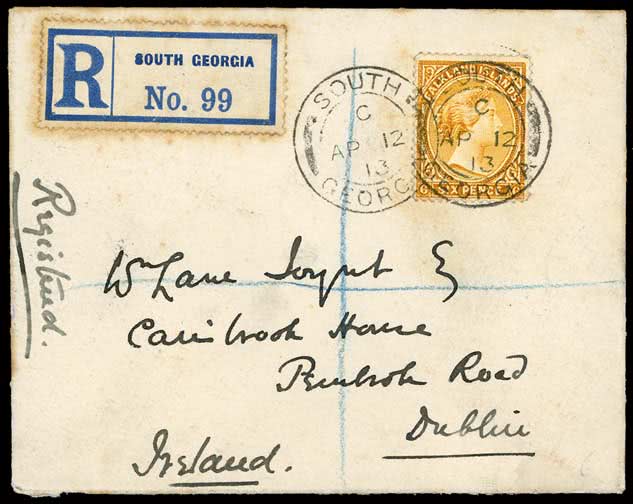 R
SOUTH GEORGIA
No. 99
SOUTH
C
AP 12
13
GEORGIA
C
AP 12
13
GEORGIA
FALKLAND ISLANDS
SIX PENCE
Registered.
Wm Lane Joynt E
Carisbrook House
Pembroke Road
Dublin
Ireland.